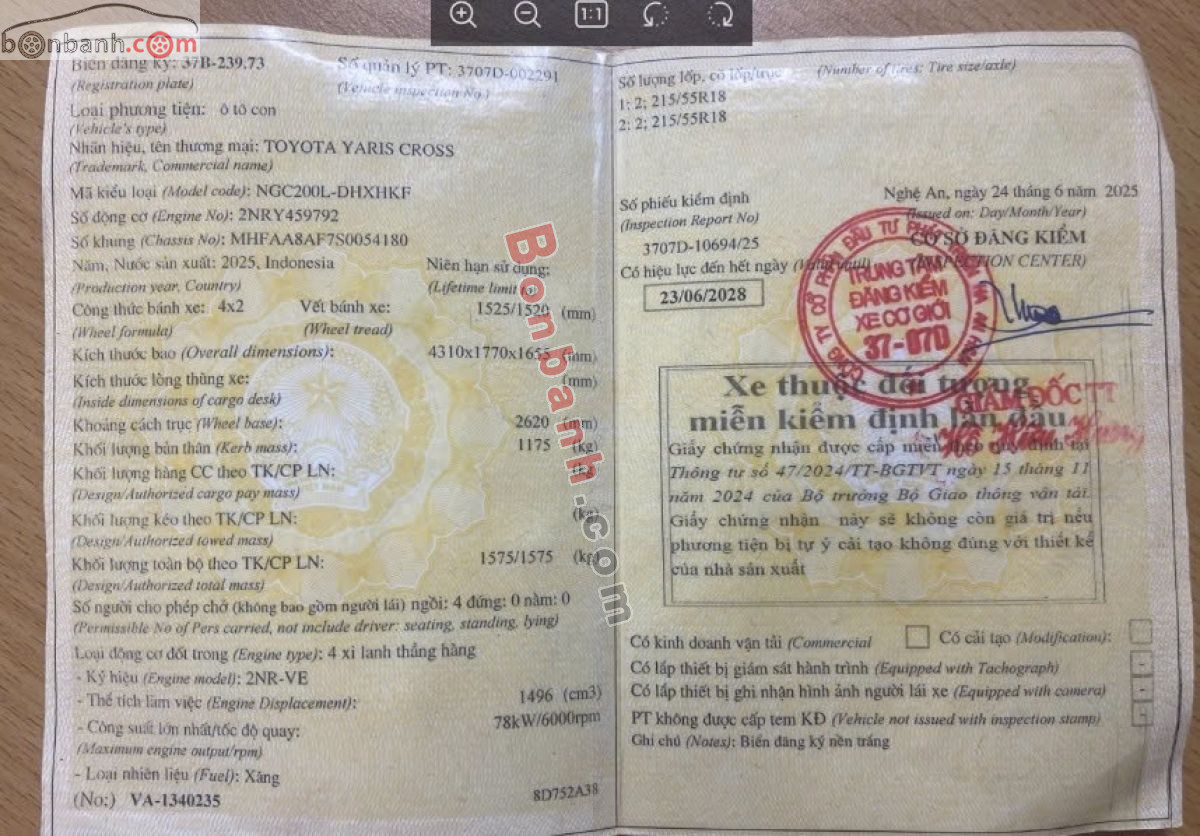 bonbanh.com
1:1
Biển đăng ký: 37B-239.73
Số quản lý PT: 3707D-002291
(Registration plate)
(Vehicle inspection No.)
Loại phương tiện: ô tô con
(Vehicle's type)
Nhãn hiệu, tên thương mại: TOYOTA YARIS CROSS
(Trademark, Commercial name)
Mã kiểu loại (Model code): NGC200L-DHXHKF
Số động cơ (Engine No): 2NRY459792
Số khung (Chassis No): MHFAA8AF7S0054180
Năm, Nước sản xuất: 2025, Indonesia
Niên hạn sử dụng:
(Production year, Country)
(Lifetime limit to)
Công thức bánh xe: 4x2
Vết bánh xe:
1525/1520 (mm)
(Wheel formula)
(Wheel tread)
Kích thước bao (Overall dimensions):
4310x1770x1655 (mm)
Kích thước lòng thùng xe:
(mm)
(Inside dimensions of cargo desk)
Khoảng cách trục (Wheel base):
2620 (mm)
Khối lượng bản thân (Kerb mass):
1175 (kg)
Khối lượng hàng CC theo TK/CP LN:
(kg)
(Design/Authorized cargo pay mass)
Khối lượng kéo theo TK/CP LN:
(kg)
(Design/Authorized towed mass)
Khối lượng toàn bộ theo TK/CP LN:
1575/1575 (kg)
(Design/Authorized total mass)
Số người cho phép chở (không bao gồm người lái) ngồi: 4 đứng: 0 nằm: 0
(Permissible No of Pers carried, not include driver: seating, standing, lying)
Loại động cơ đốt trong (Engine type): 4 xi lanh thẳng hàng
- Ký hiệu (Engine model): 2NR-VE
- Thể tích làm việc (Engine Displacement):
1496 (cm3)
- Công suất lớn nhất/tốc độ quay:
78kW/6000rpm
(Maximum engine output/rpm)
- Loại nhiên liệu (Fuel): Xăng
(No:) VA-1340235
8D752A38
Số lượng lốp, cỡ lốp/trục (Number of tires: Tire size/axle)
1: 2; 215/55R18
2: 2; 215/55R18
Số phiếu kiểm định
(Inspection Report No)
3707D-10694/25
Có hiệu lực đến hết ngày (Valid until)
23/06/2028
Nghệ An, ngày 24 tháng 6 năm 2025
(Issued on: Day/Month/Year)
CƠ SỞ ĐĂNG KIỂM
(INSPECTION CENTER)
CÔNG TY CỔ PHẦN ĐẦU TƯ
TRUNG TÂM
ĐĂNG KIỂM
XE CƠ GIỚI
37-07D
GIÁM ĐỐC TT
Xe thuộc đối tượng
miễn kiểm định lần đầu
Giấy chứng nhận được cấp miễn theo quy định tại
Thông tư số 47/2024/TT-BGTVT ngày 15 tháng 11
năm 2024 của Bộ trưởng Bộ Giao thông vận tải.
Giấy chứng nhận này sẽ không còn giá trị nếu
phương tiện bị tự ý cải tạo không đúng với thiết kế
của nhà sản xuất
Có kinh doanh vận tải (Commercial
Có cải tạo (Modification):
Có lắp thiết bị giám sát hành trình (Equipped with Tachograph)
-
Có lắp thiết bị ghi nhận hình ảnh người lái xe (Equipped with camera)
-
PT không được cấp tem KĐ (Vehicle not issued with inspection stamp)
-
Ghi chú (Notes): Biển đăng ký nền trắng
Bonbanh.com